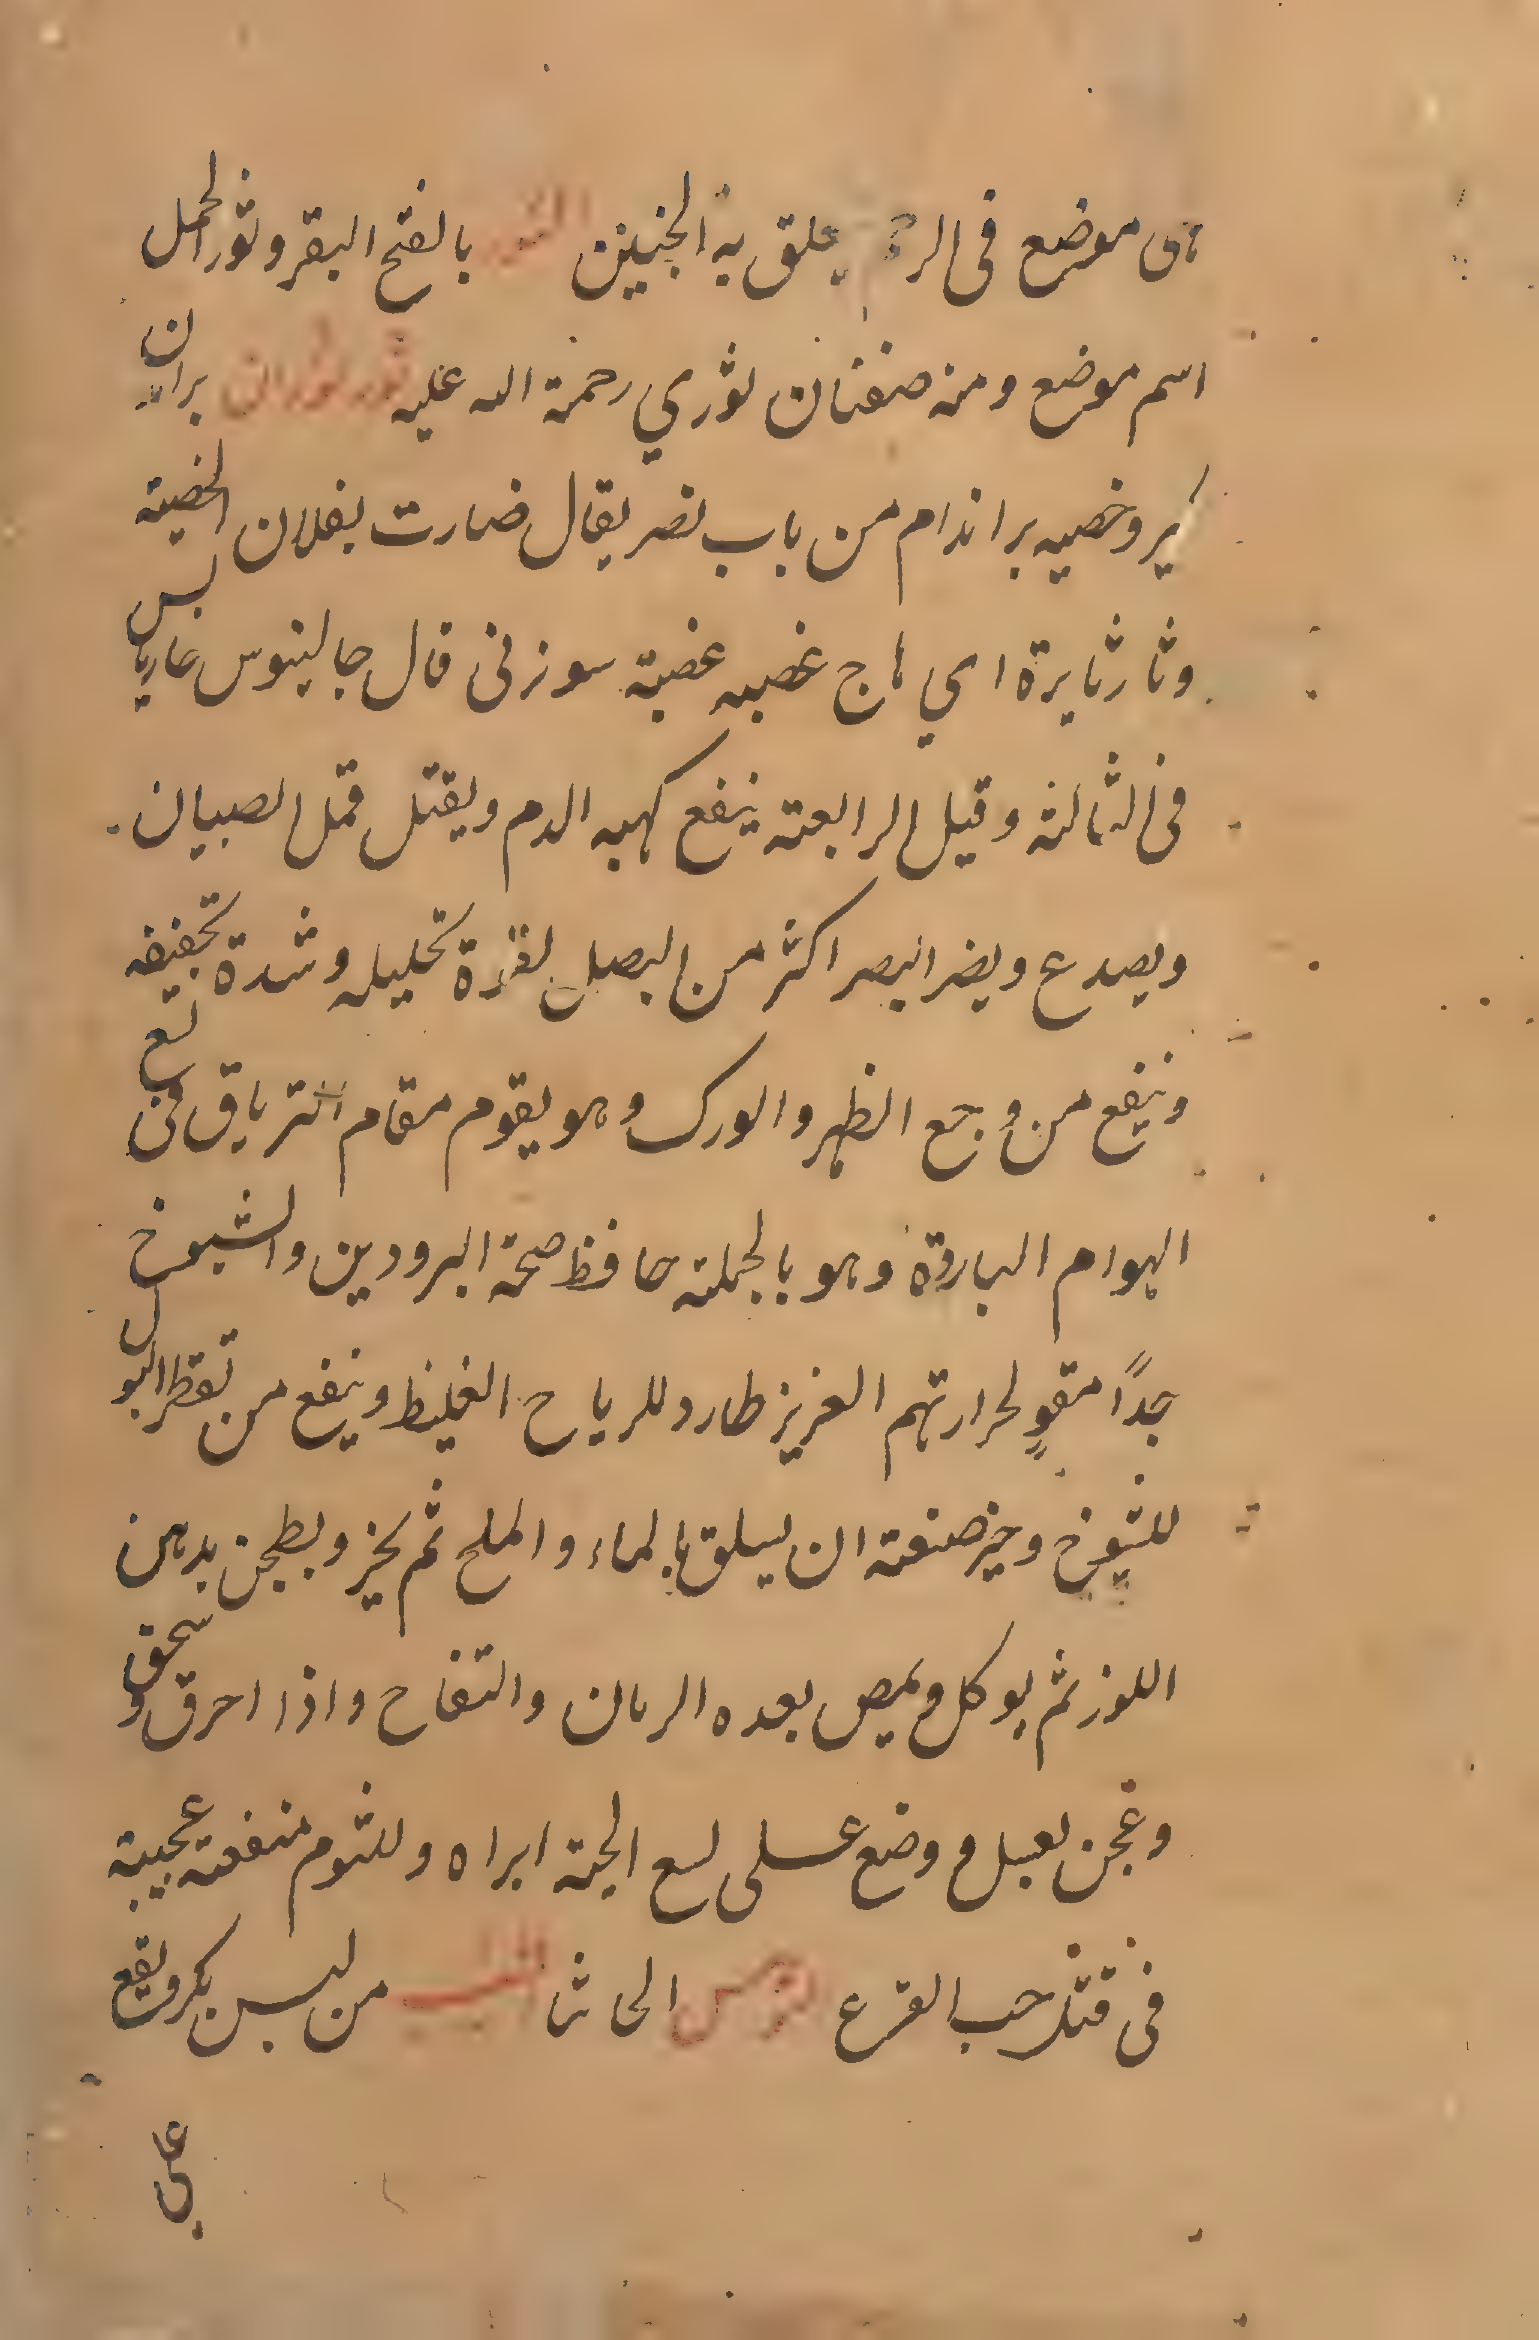 هى موضع فى الرحم يعلق به الجنين الثور بالفتح البقر وثور الحمل
اسم موضع ومنه صفنان ثوري رحمة الله عليه ثور ثوران بران
كير وخصيه براندام من باب نصر يقال ضارت بفلان الخصية
وثار ثايرة اي هاج غصبه غضبة سوزنى قال جالينوس حار يابس
فى الثالثه وقيل الرابعته ينفع كهبه الدم ويقتل قمل الصبيان
ويصدع ويضر البصر اكثر من البصل لقوة تحليله وشدة تجفيفه
وينفع من وجع الظهر والورك وهو يقوم مقام الترياق فى لسع
الهوام الباردة وهو بالجملته حافظ صحة البرودين والشيوخ
جدًا مقوٍ لحرارتهم الغريز طارد للرياح الغليظ وينفع من تقطر البول
للشيوخ وخير صنعته ان يسلق بالماء والملح ثم يخبز ويطجن بدهن
اللوز ثم يوكل ويمص بعده الرمان والتفاح واذا احرق وسحق
وعجن بعسل ووضع على لسع الحية ابراه وللثوم منفعة عجيبة
فى قتل حب القرع الى ثا من ليس بكر ويقع
على